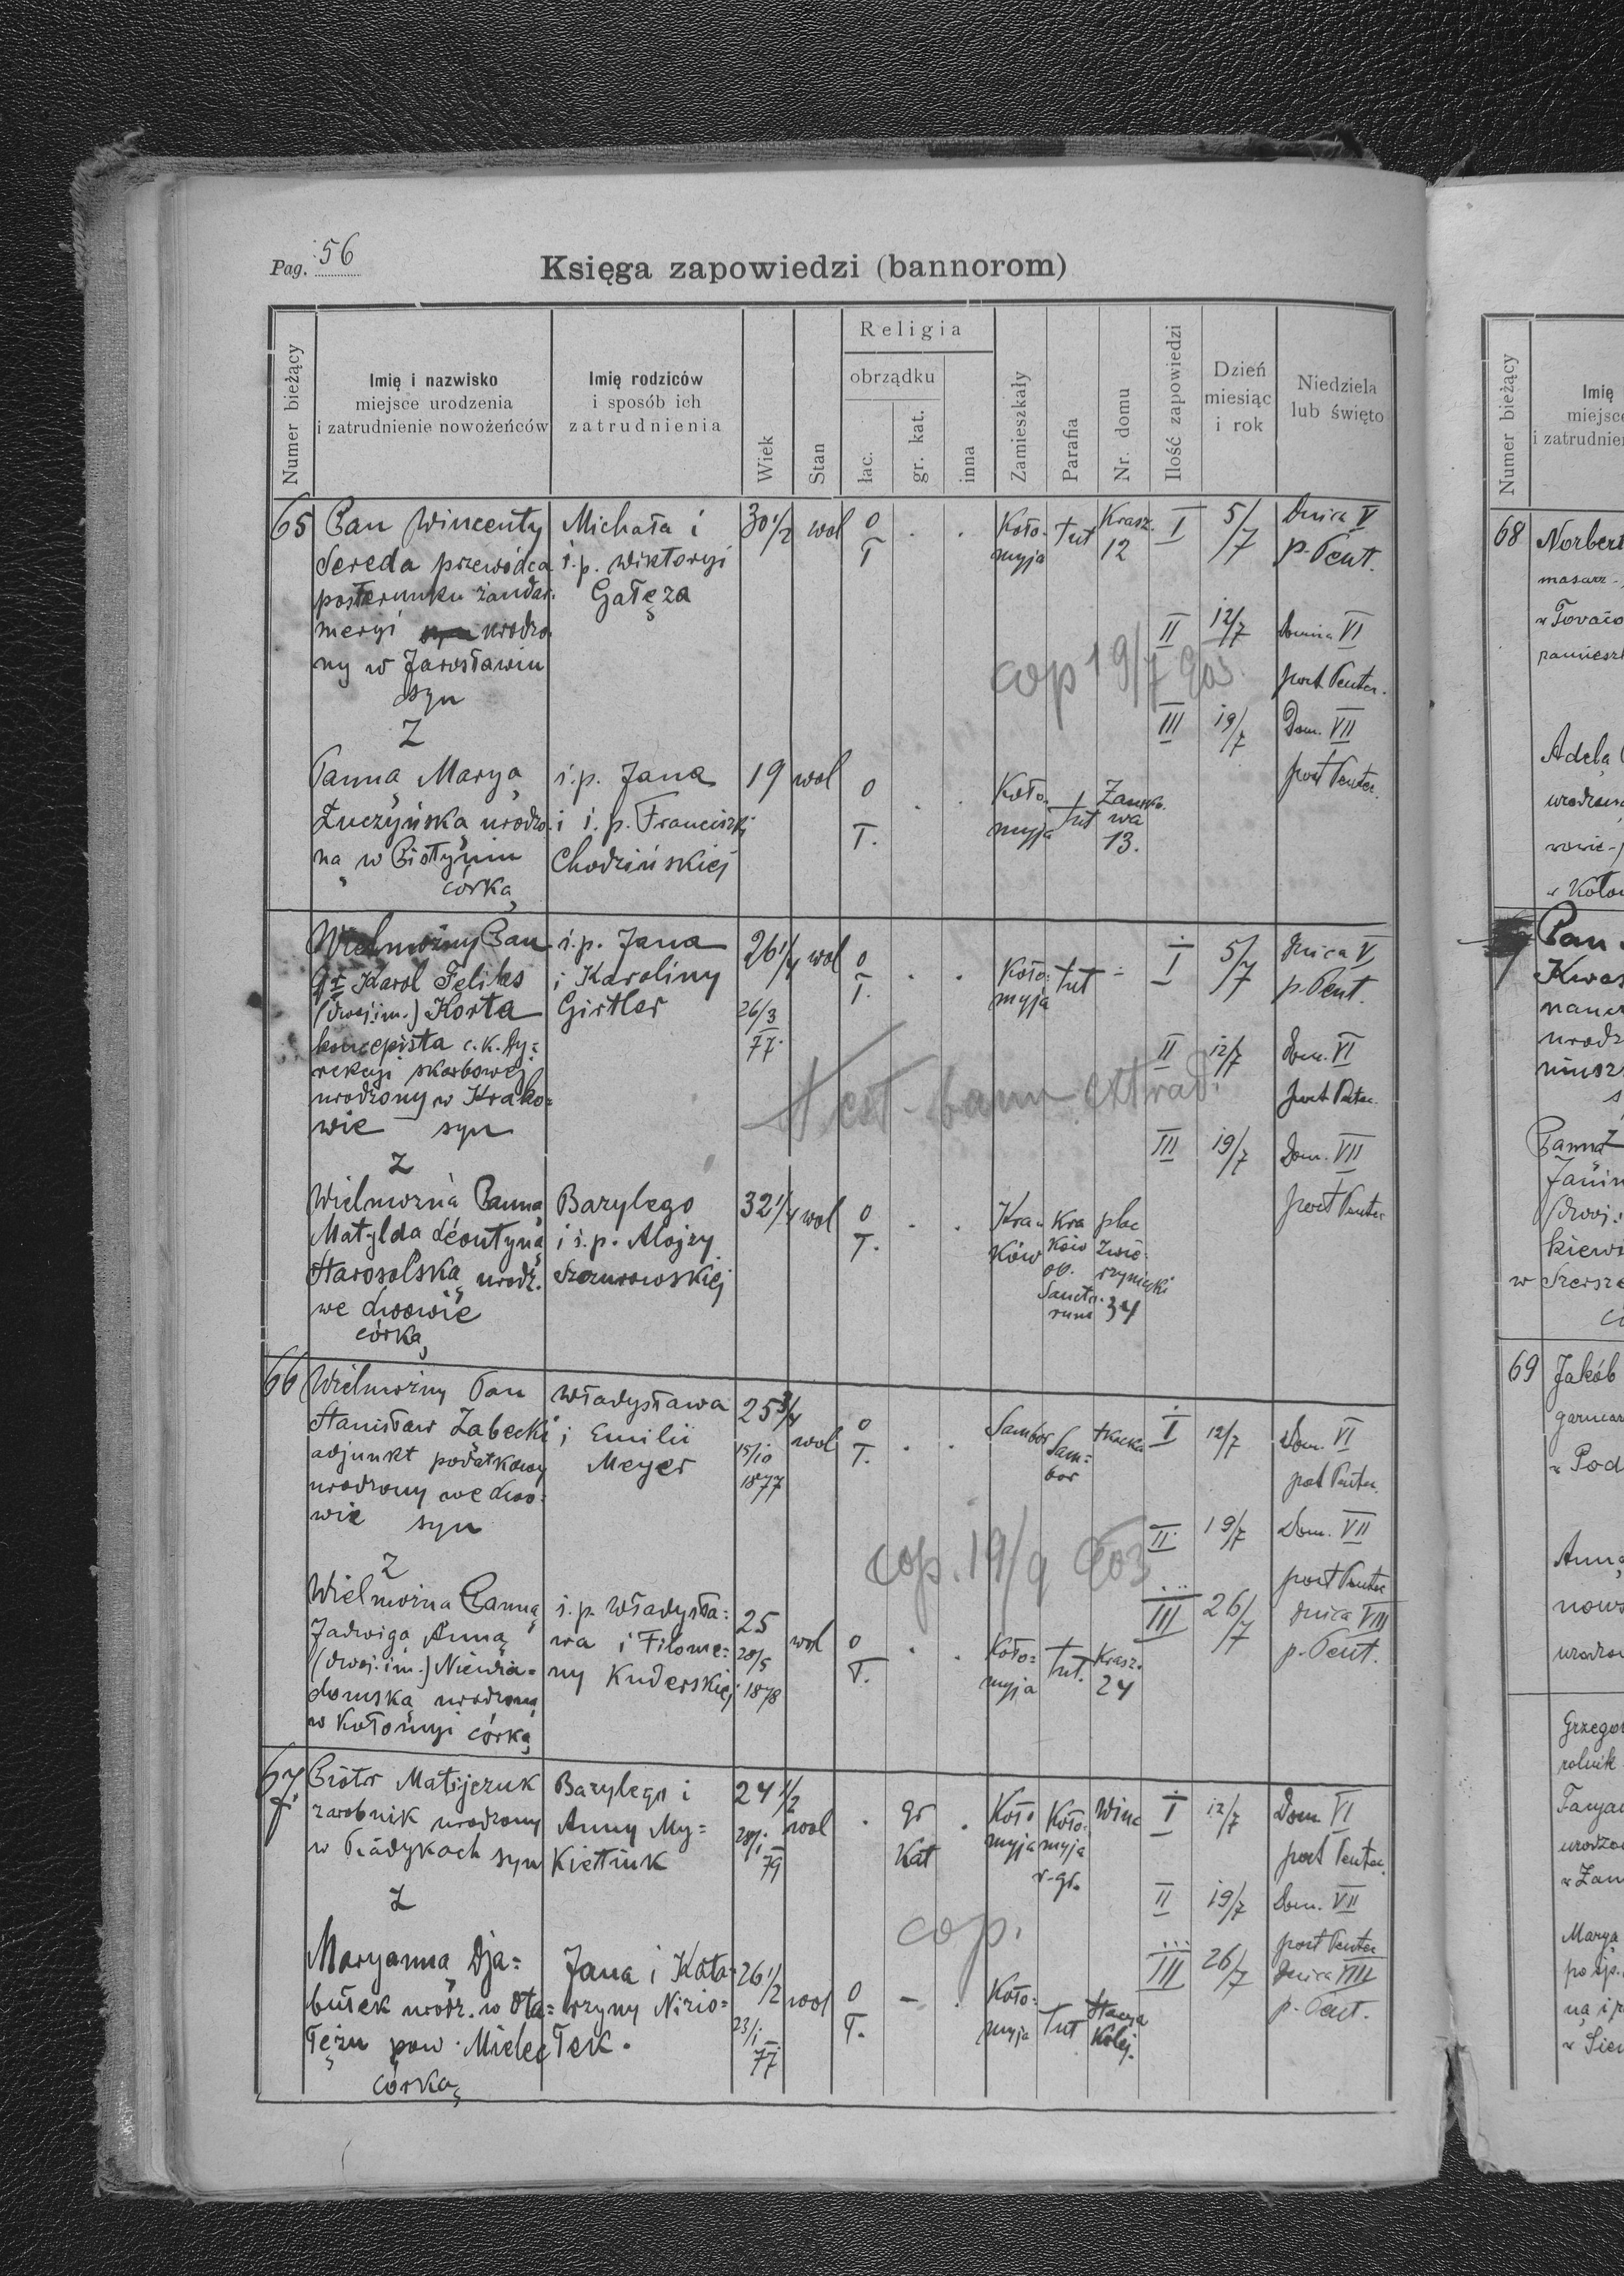 Pag. 56
Księga zapowiedzi (bannorom)
Numer bieżący
Imię i nazwisko
miejsce urodzenia
i zatrudnienie nowożeńców
Imię rodziców
i sposób ich
zatrudnienia
Wiek
Stan
Religia
obrządku
łac.
gr. kat.
inna
Zamieszkały
Parafia
Nr. domu
Ilość zapowiedzi
Dzień
miesiąc
i rok
Niedziela
lub święto
65
Pan Wincenty
Sereda przewódca
posterunku żandar-
meryi urodzo-
ny w Jarosławiu
syn
Z
Michała i
ś.p. Wiktoryi
Gałęza
30 1/2
wol
o
T
Koło-
myja
tut
Krasz.
12
I
5/7
Dnica V
p. Pent.
II
12/7
Domin VI
post Pentec.
cop 19/7 903
III
19/7
Dom. VII
post Pentec.
Panną Maryą
Żuczyńską urodzo-
ną w Pistyniu
córką
ś.p. Jana
i ś.p. Franciszki
Chodzińskiej
19
wol
o
T.
Koło-
myja
tut
13.
Wielmożny Pan
Karol Feliks
(dwoj. im.) Korta
koncepista c. k. Dy-
rekcyi skarbowej
urodzony w Krako-
wie syn
Z
ś.p. Jana
i Karoliny
Girtler
26 1/4
26/3
77.
wol
o
T.
Koło-
myja
tut
I
5/7
Dnica V
p. Pent.
II
12/7
Dom. VI
post Pentec.
Test. bann. extrad.
III
19/7
Dom. VII
post Pentec
Wielmożną Panną
Matyldą Leontyną
Starosolską urodz.
we Lwowie
córką
Bazylego
i ś.p. Alojzy
Szczurowskiej
32 1/4
wol
o
T.
Kra-
ków
Kra
ków
OO.
Sancto-
rum
plac
Zwie-
rzyniecki
34
66
Wielmożny Pan
Stanisław Ząbecki
adjunkt podatkowy
urodzony we Lwo-
wie syn
Z
Władysława
i Emilii
Meyer
25 3/4
15/10
1877
wol
o
T.
Sambor
Sam-
bor
tkacka
I
12/7
Dom. VI
post Pentec.
II
19/7
Dom. VII
post Pentec
cop. 19/9 903
III
26/7
Dnica VIII
p. Pent.
Wielmożną Panną
Jadwigą Anną
(dwoj. im.) Niewia-
domską urodzoną
w Kołomyi córką
ś.p. Władysła-
wa i Filome-
ny Kuderskiej
25
28/5
1878
wol
o
T.
Koło-
myja
tut.
Krasz.
24
67
Piotr Matijczuk
zarobnik urodzony
w Piadykach syn
Z
Bazylego i
Anny My-
kietiuk
24 1/2
28/1
79
wol
gr
Kat
Koło
myja
Koło-
myja
r-gr.
Winc
I
12/7
Dom. VI
post Pentec.
II
19/7
Dom. VII
post Pentec
cop.
III
26/7
Dnica VIII
p. Pent.
Maryanną Dja-
bułek urodz. w Ota-
łężu pow. Mielec
córką
Jana i Kata-
rzyny Nizio-
łek.
26 1/2
23/1
77
wol
o
T.
Koło-
myja
tut
Stacya
Kolej.
Numer bieżący
Imię
miejsce
i zatrudnie
68
Norbert
masarz
Adelą
urodzoną
Pan
69
Jakób
garncarz
Anną
urodzon
rolnik
Maryą